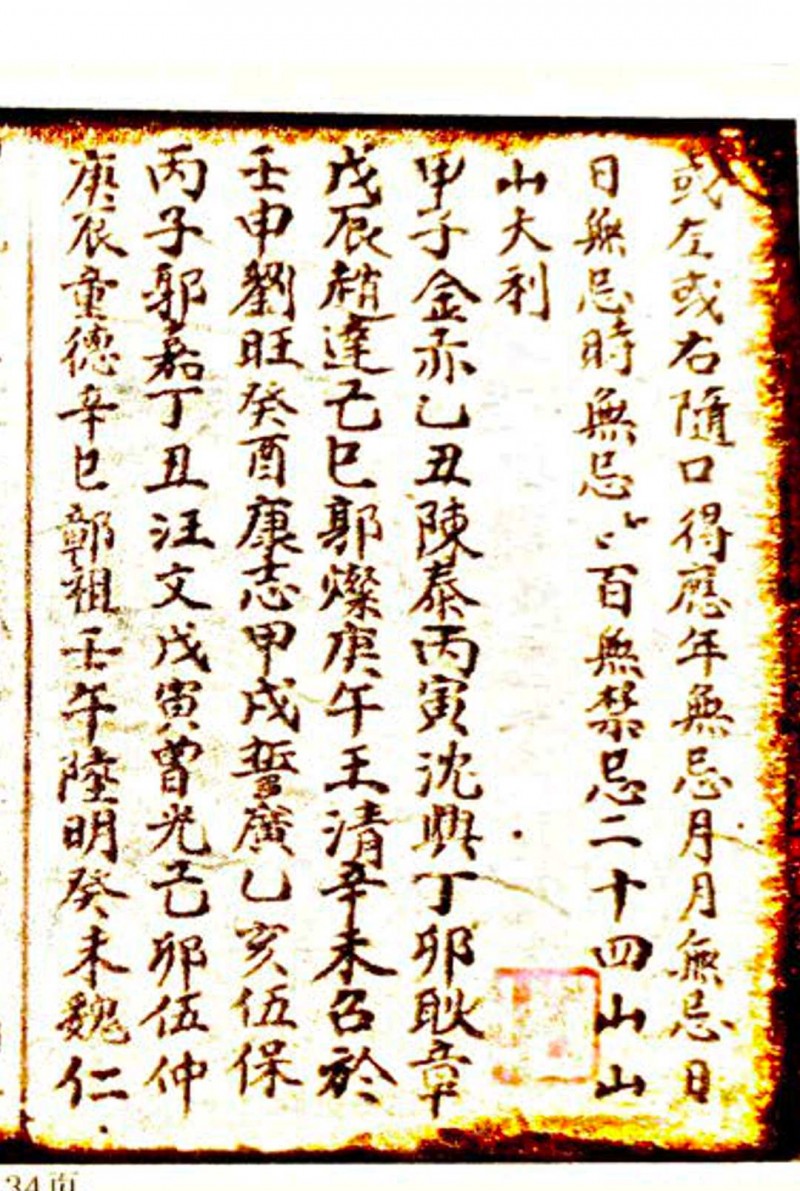 或左或右隨口得應年無忌月月無忌日
日無忌時無忌〻百無禁忌二十四山山
山大利
甲子金赤乙丑陳泰丙寅沈興丁卯耿章
戊辰趙達己巳郭燦庚午王清辛未
壬申劉旺癸酉康志甲戌誓廣乙亥伍保
丙子郭嘉丁丑汪文戊寅曾光己卯伍仲
庚辰童德辛巳鄣祖壬午陸明癸未魏仁
34页